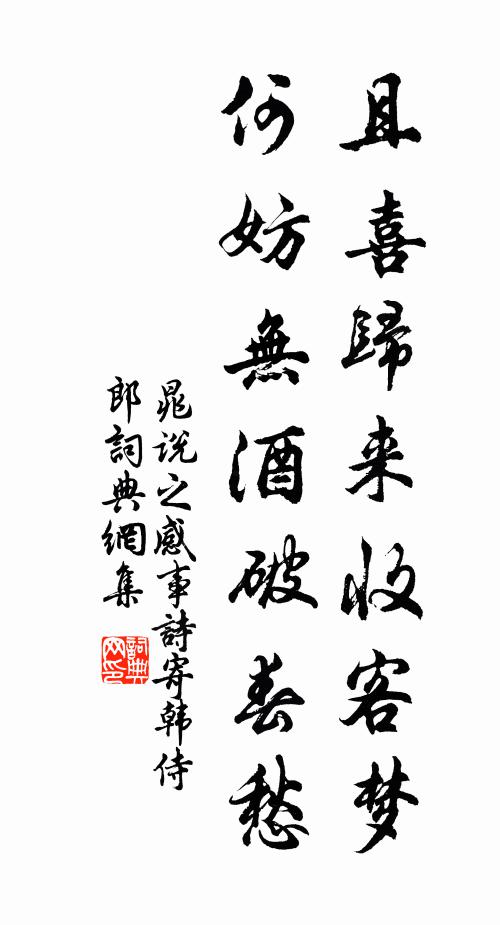 且喜歸来收客梦
何妨無酒破春愁
晁说之感事詩寄韩侍
郎詞典網集
詞典
网印